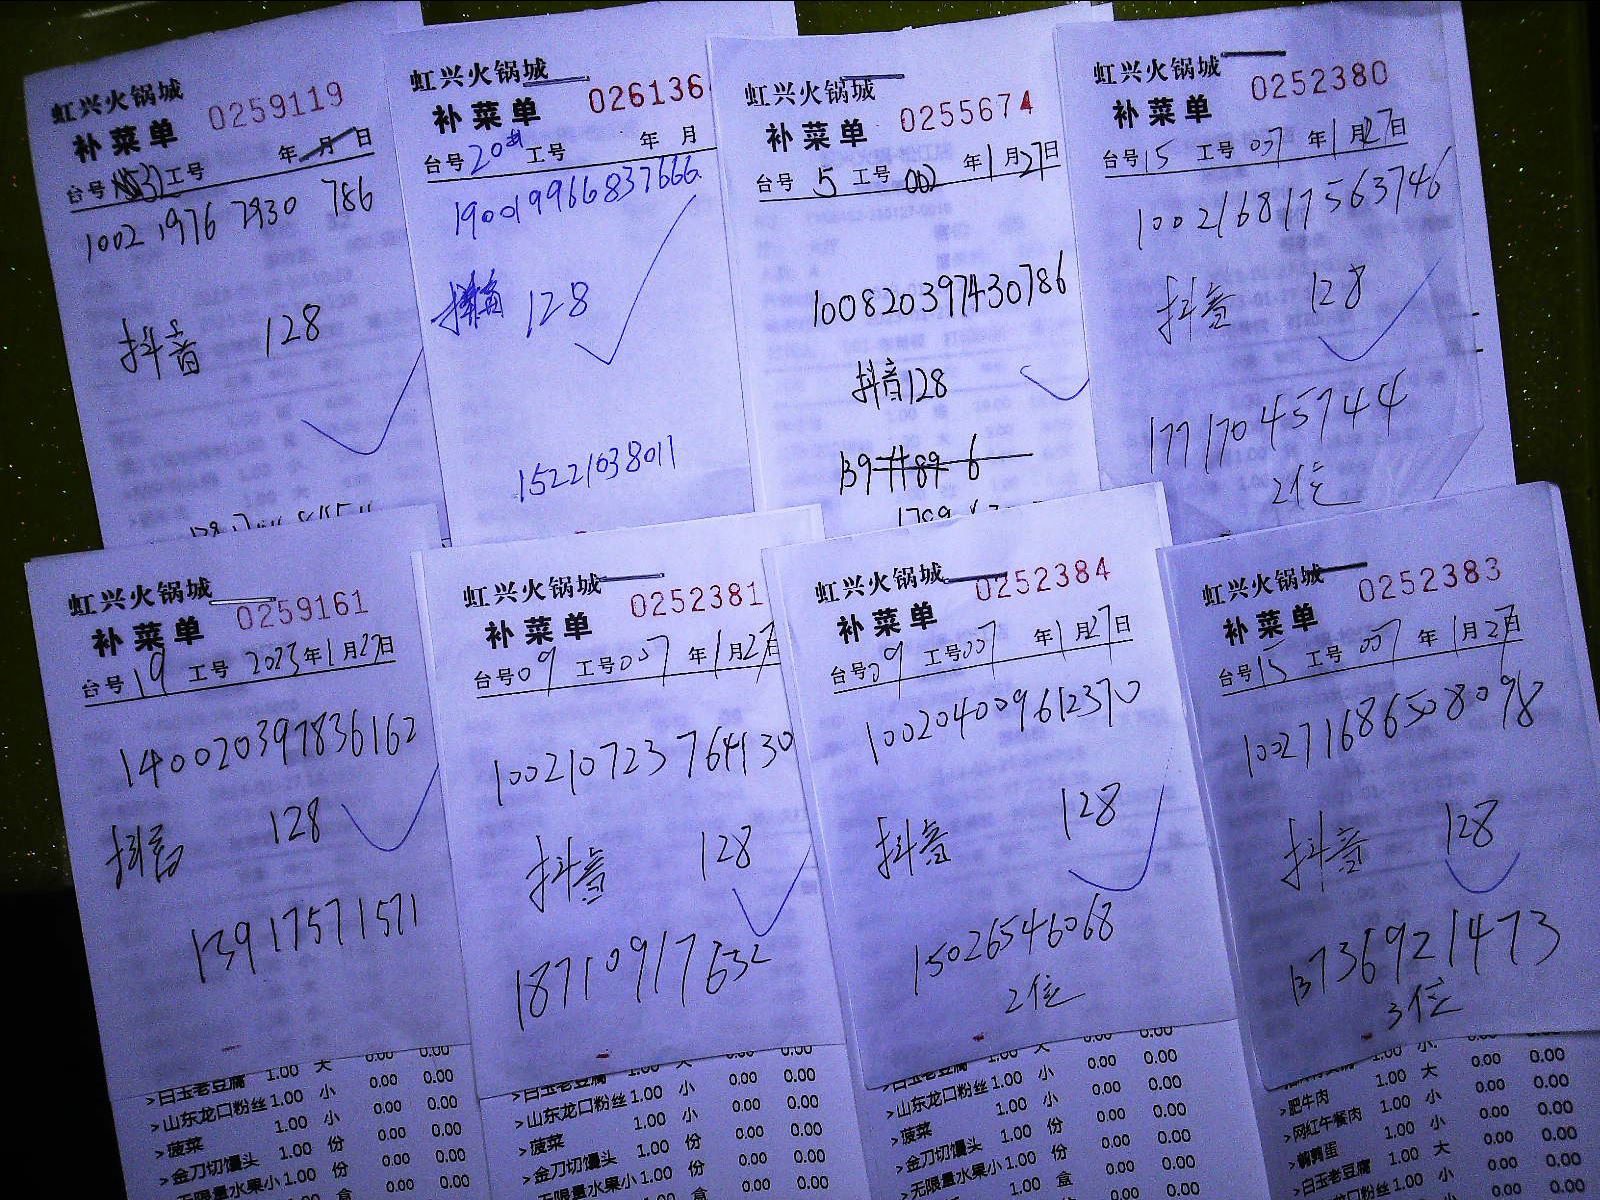 虹兴火锅城
补菜单 0259119
台号 工号 年 月 日
1002 1976 7930 786
抖音 128
虹兴火锅城
补菜单 026136
台号 20 工号 年 月
190019966837666
抖音 128
15221038011
虹兴火锅城
补菜单 0255674
台号 5 工号 002 年1月27日
100820397430786
抖音128
虹兴火锅城
补菜单 0252380
台号15 工号 007 年1月27日
100216817563746
抖音 128
17717045744
2位
虹兴火锅城
补菜单 0259161
台号19 工号 2023年1月27日
1400020397836162
抖音 128
13917571571
虹兴火锅城
补菜单 0252381
台号09 工号007 年1月27日
1002107237644130
抖音 128
18710917632
虹兴火锅城
补菜单 0252384
台号09 工号007 年1月27日
1002040099612370
抖音 128
15026546068
2位
虹兴火锅城
补菜单 0252383
台号15 工号 007 年1月27日
1002716865080098
抖音 128
13736921473
3位
>白玉老豆腐 1.00 大 0.00 0.00
>山东龙口粉丝 1.00 小 0.00 0.00
>菠菜 1.00 小 0.00 0.00
>金刀切馒头 1.00 份 0.00 0.00
>无限量水果小 1.00 份 0.00 0.00
盒 0.00 0.00
>白玉老豆腐 1.00 大 0.00 0.00
>山东龙口粉丝 1.00 小 0.00 0.00
>菠菜 1.00 小 0.00 0.00
>金刀切馒头 1.00 份 0.00 0.00
>无限量水果小 1.00 份 0.00 0.00
盒 0.00 0.00
>白玉老豆腐 1.00 大 0.00 0.00
>山东龙口粉丝 1.00 小 0.00 0.00
>菠菜 1.00 小 0.00 0.00
>金刀切馒头 1.00 份 0.00 0.00
>无限量水果小 1.00 份 0.00 0.00
盒 0.00 0.00
1.00 小 0.00 0.00
>肥牛肉 1.00 大 0.00 0.00
>网红午餐肉 1.00 小 0.00 0.00
>鹌鹑蛋 1.00 小 0.00 0.00
>白玉老豆腐 1.00 大 0.00 0.00
>山东龙口粉丝 1.00 小 0.00 0.00